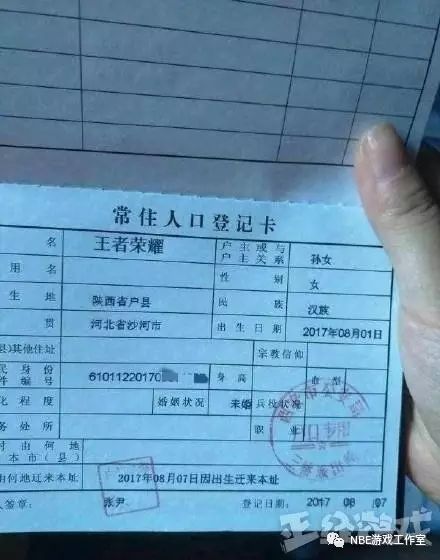 常住人口登记卡
名 王者荣耀 户主或与户主关系 孙女
用名 性别 女
生地 陕西省户县 民族 汉族
贯 河北省沙河市 出生日期 2017年08月01日
县)其他住址 宗教信仰
民身份件编号 61011220170 身高 血型
化程度 婚姻状况 未婚 兵役状况
务处所 职业
时由何地
本市(县)
由何地迁来本址 2017年08月07日因出生迁来本址
人签章: 张尹 登记日期: 2017 08 07
正谷游戏
NBE游戏工作室